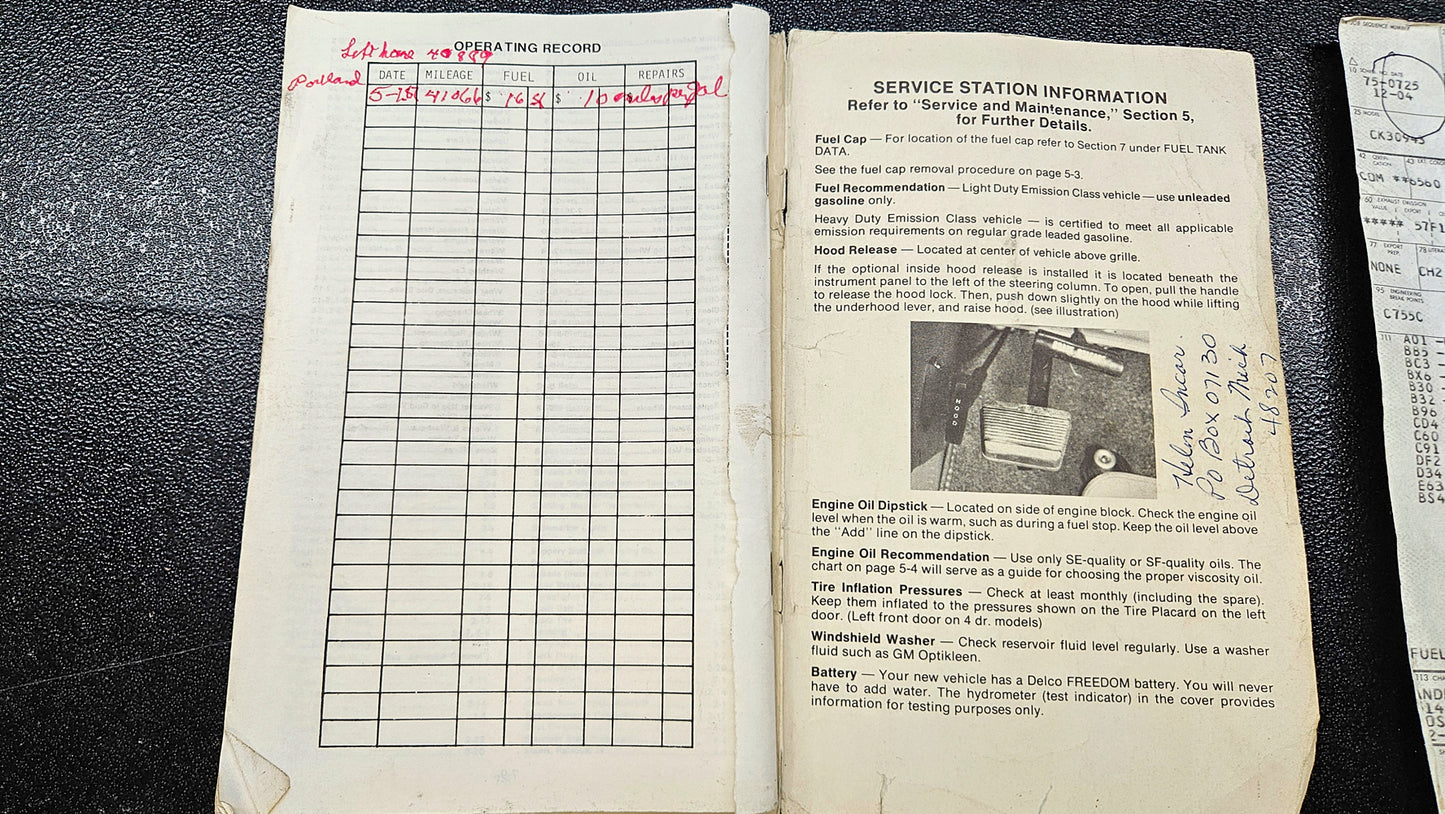 OPERATING RECORD
Left home 40889
Portland
DATE MILEAGE FUEL OIL REPAIRS
5-18 41066 $ 16 $ 10 miles per gal
SERVICE STATION INFORMATION
Refer to "Service and Maintenance," Section 5,
for Further Details.
Fuel Cap — For location of the fuel cap refer to Section 7 under FUEL TANK
DATA.
See the fuel cap removal procedure on page 5-3.
Fuel Recommendation — Light Duty Emission Class vehicle — use unleaded
gasoline only.
Heavy Duty Emission Class vehicle — is certified to meet all applicable
emission requirements on regular grade leaded gasoline.
Hood Release — Located at center of vehicle above grille.
If the optional inside hood release is installed it is located beneath the
instrument panel to the left of the steering column. To open, pull the handle
to release the hood lock. Then, push down slightly on the hood while lifting
the underhood lever, and raise hood. (see illustration)
HOOD
Helm Incor.
PO Box 07130
Detroit Mich
48207
Engine Oil Dipstick — Located on side of engine block. Check the engine oil
level when the oil is warm, such as during a fuel stop. Keep the oil level above
the "Add" line on the dipstick.
Engine Oil Recommendation — Use only SE-quality or SF-quality oils. The
chart on page 5-4 will serve as a guide for choosing the proper viscosity oil.
Tire Inflation Pressures — Check at least monthly (including the spare).
Keep them inflated to the pressures shown on the Tire Placard on the left
door. (Left front door on 4 dr. models)
Windshield Washer — Check reservoir fluid level regularly. Use a washer
fluid such as GM Optikleen.
Battery — Your new vehicle has a Delco FREEDOM battery. You will never
have to add water. The hydrometer (test indicator) in the cover provides
information for testing purposes only.
SEQUENCE NUMBER
75-0725
12-04
CK30943
COM **6560
***** 57F1
77 EXPORT
NONE CH2
95 ENGINEERING
BREAK POINTS
C755C
111 A01
BB5
BC3
BX6
B30
B32
B96
CD4
C60
C91
DF2
D34
E63
BS4
FUEL